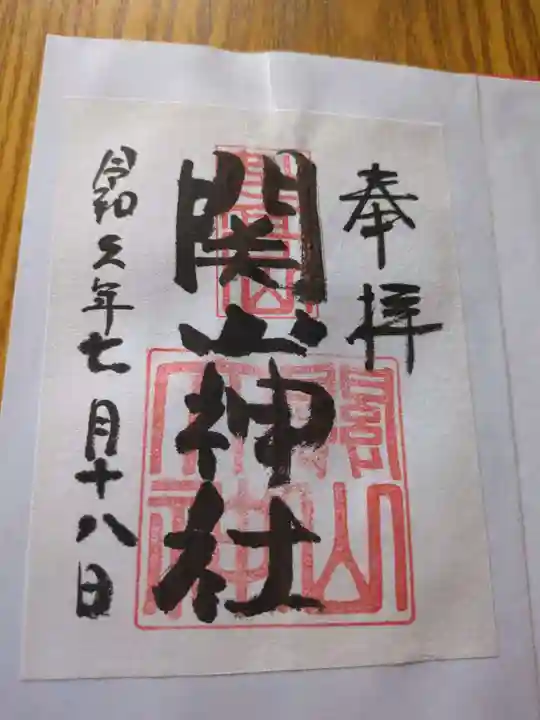 奉拝
関山神社
令和年七月十八日